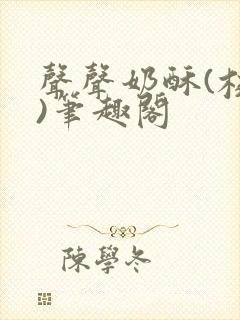 聲聲奶酥(
)筆趣閣
陳學冬